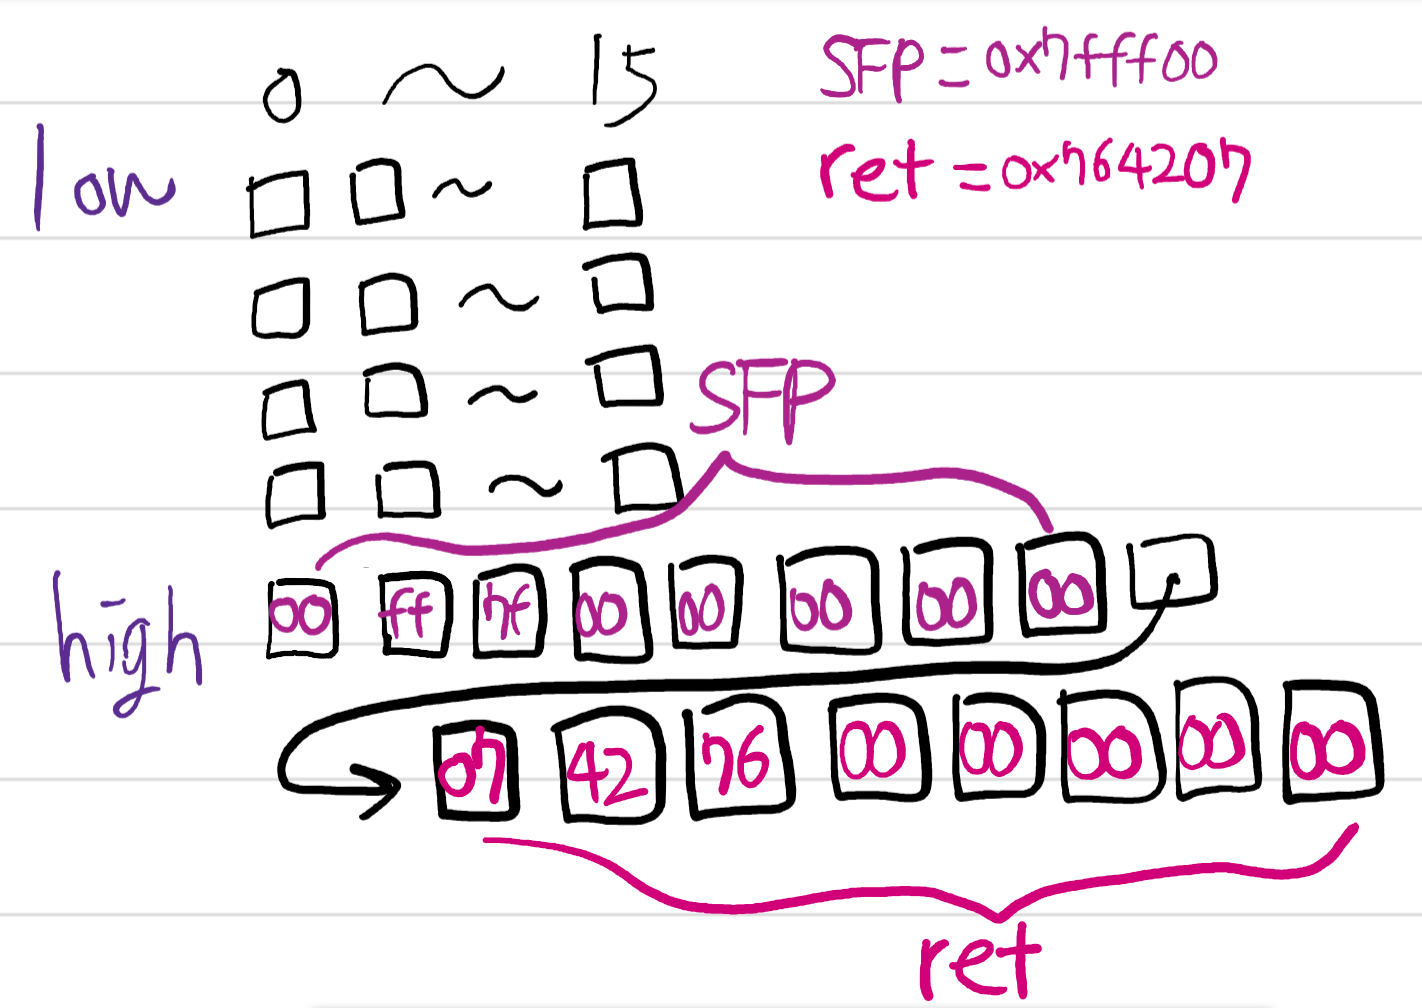 0 ~ 15
SFP = 0x7fff00
ret = 0x764207
low
~
~
~
~
SFP
high
00 ff 7f 00 00 00 00 00
07 42 76 00 00 00 00 00
ret